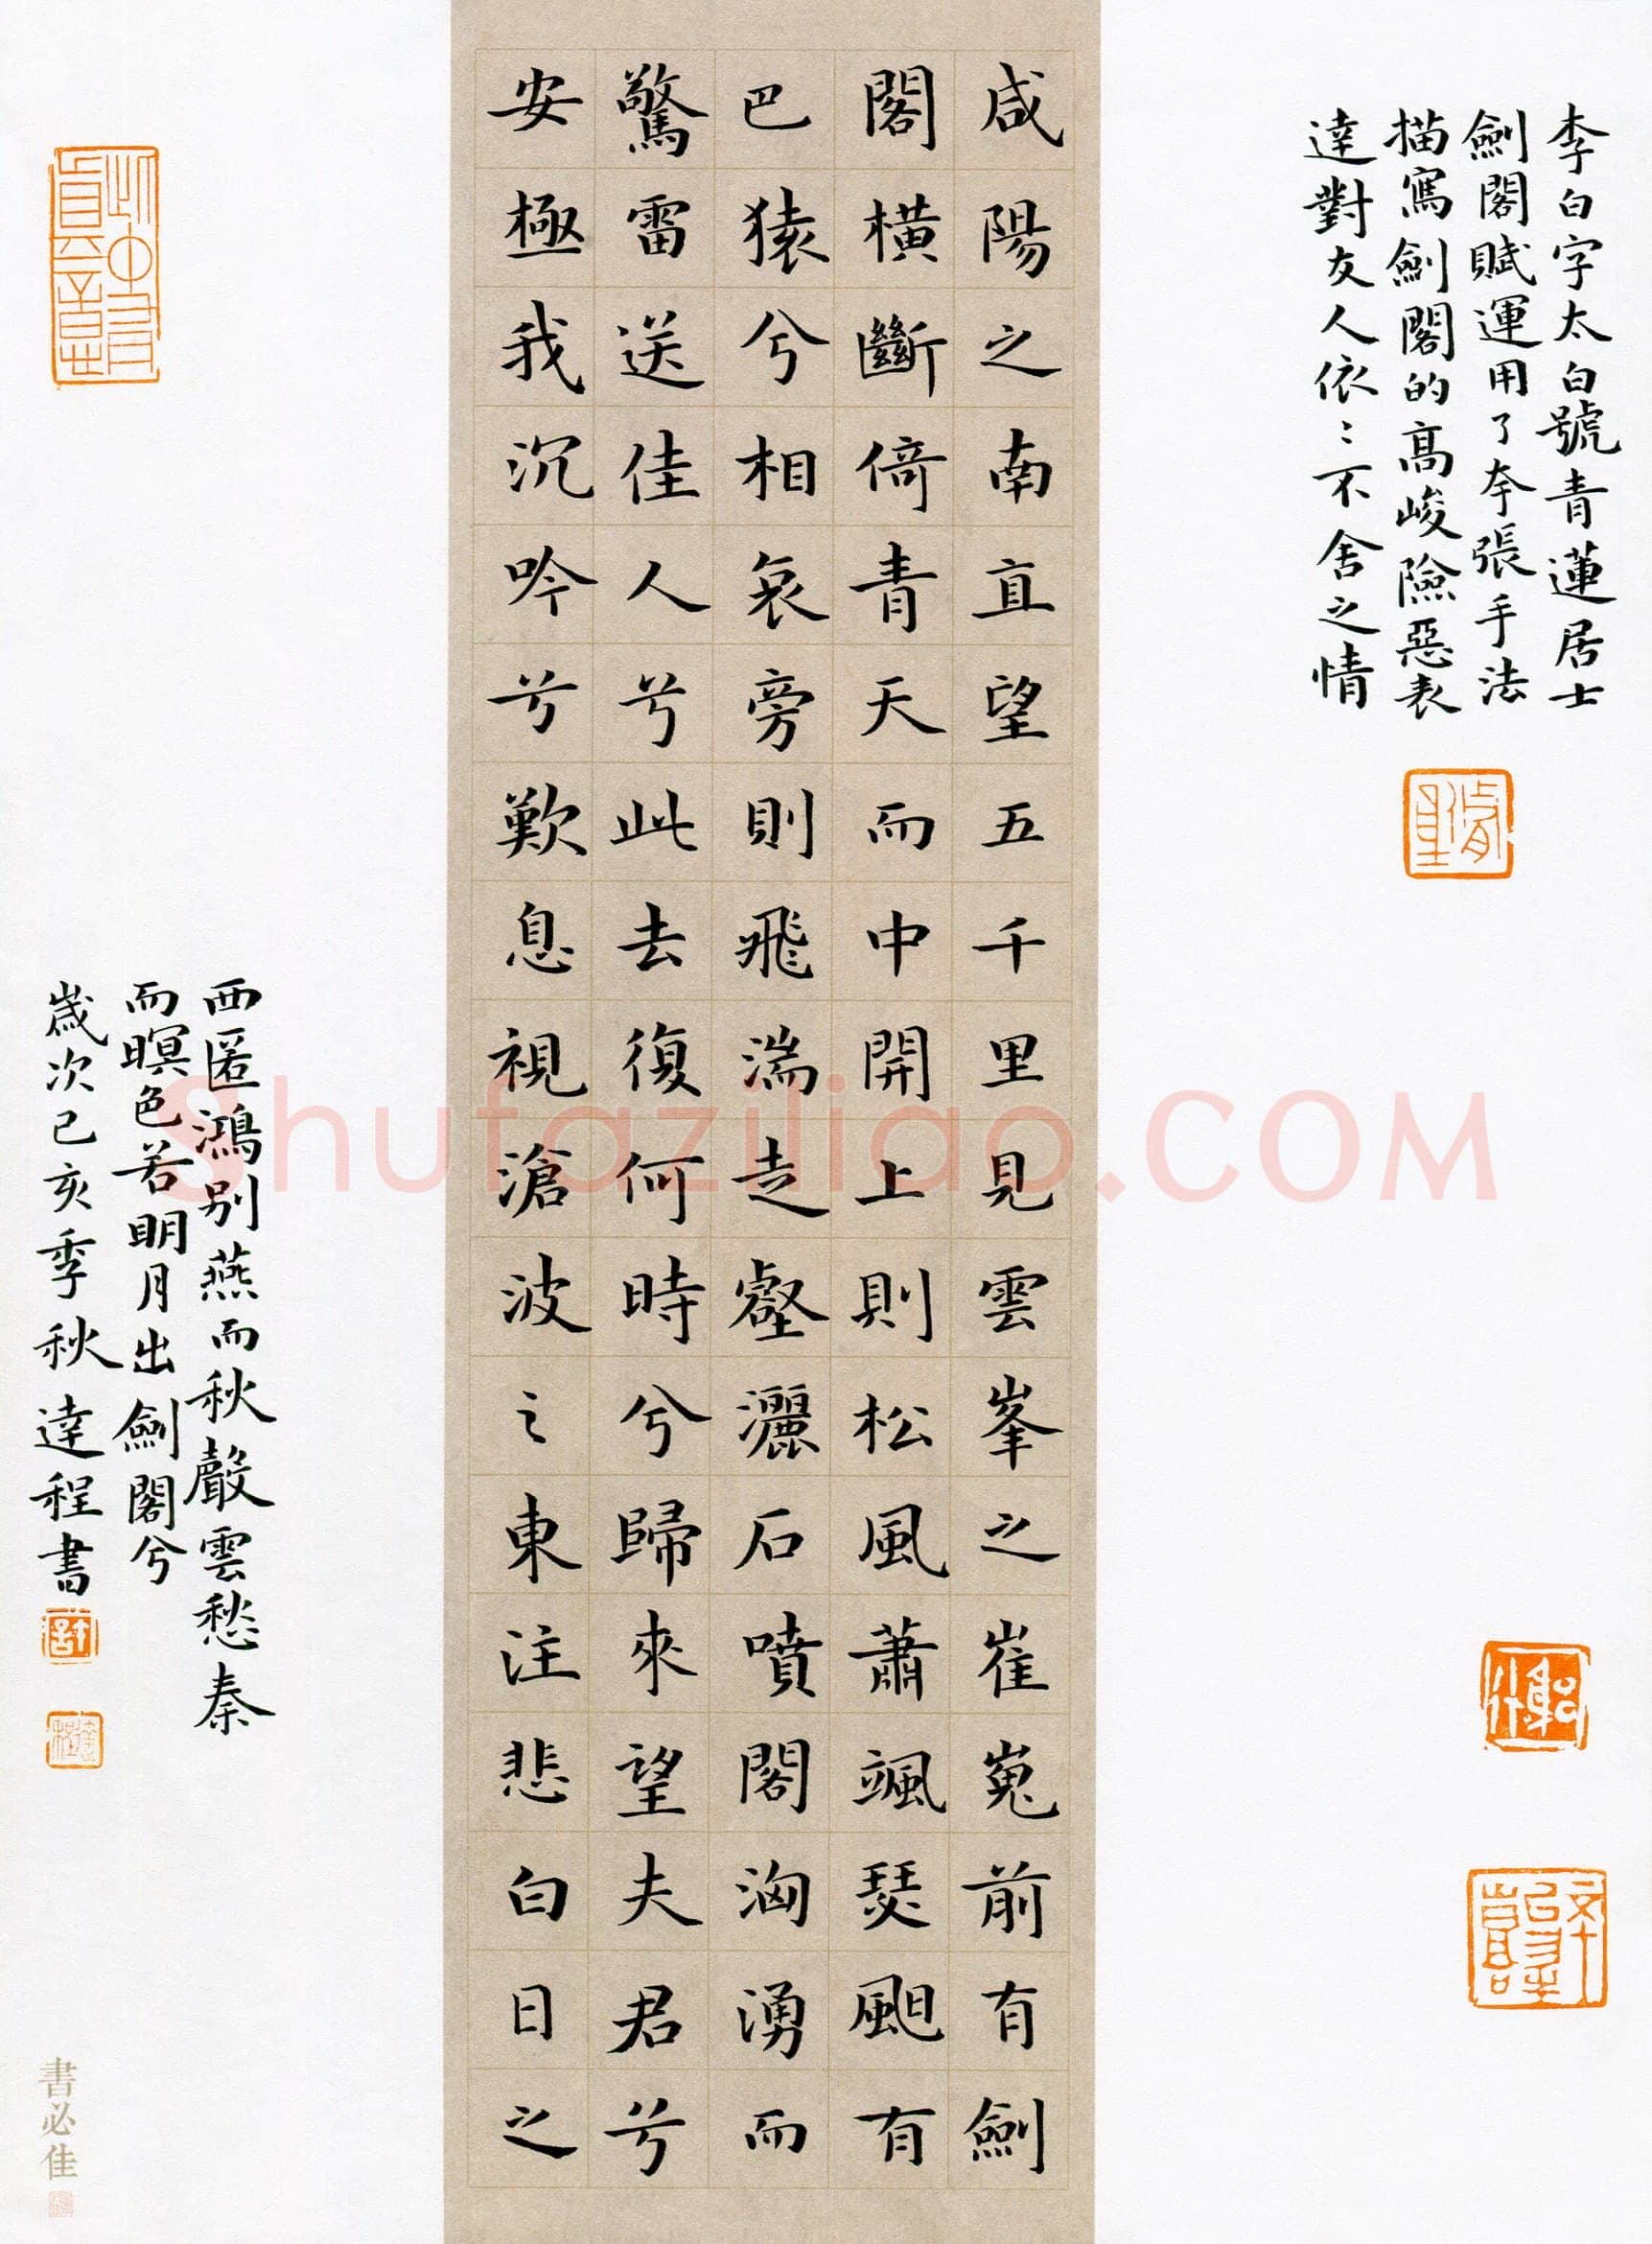 李白字太白號青蓮居士
劍閣賦運用了夸張手法
描寫劍閣的高峻險惡表
達對友人依〻不舍之情
咸陽之南直望五千里見雲峯之崔嵬前有劍
閣橫斷倚青天而中開上則松風蕭颯瑟䫻有
巴猿兮相哀旁則飛湍走壑灑石噴閣洶湧而
驚雷送佳人兮此去復何時兮歸來望夫君兮
安極我沉吟兮歎息視滄波之東注悲白日之
西匿鴻別燕而秋聲雲愁秦
而暝色若明月出劍閣兮
歲次己亥季秋達程書
許
達程
書必佳
Shufaziliao.COM